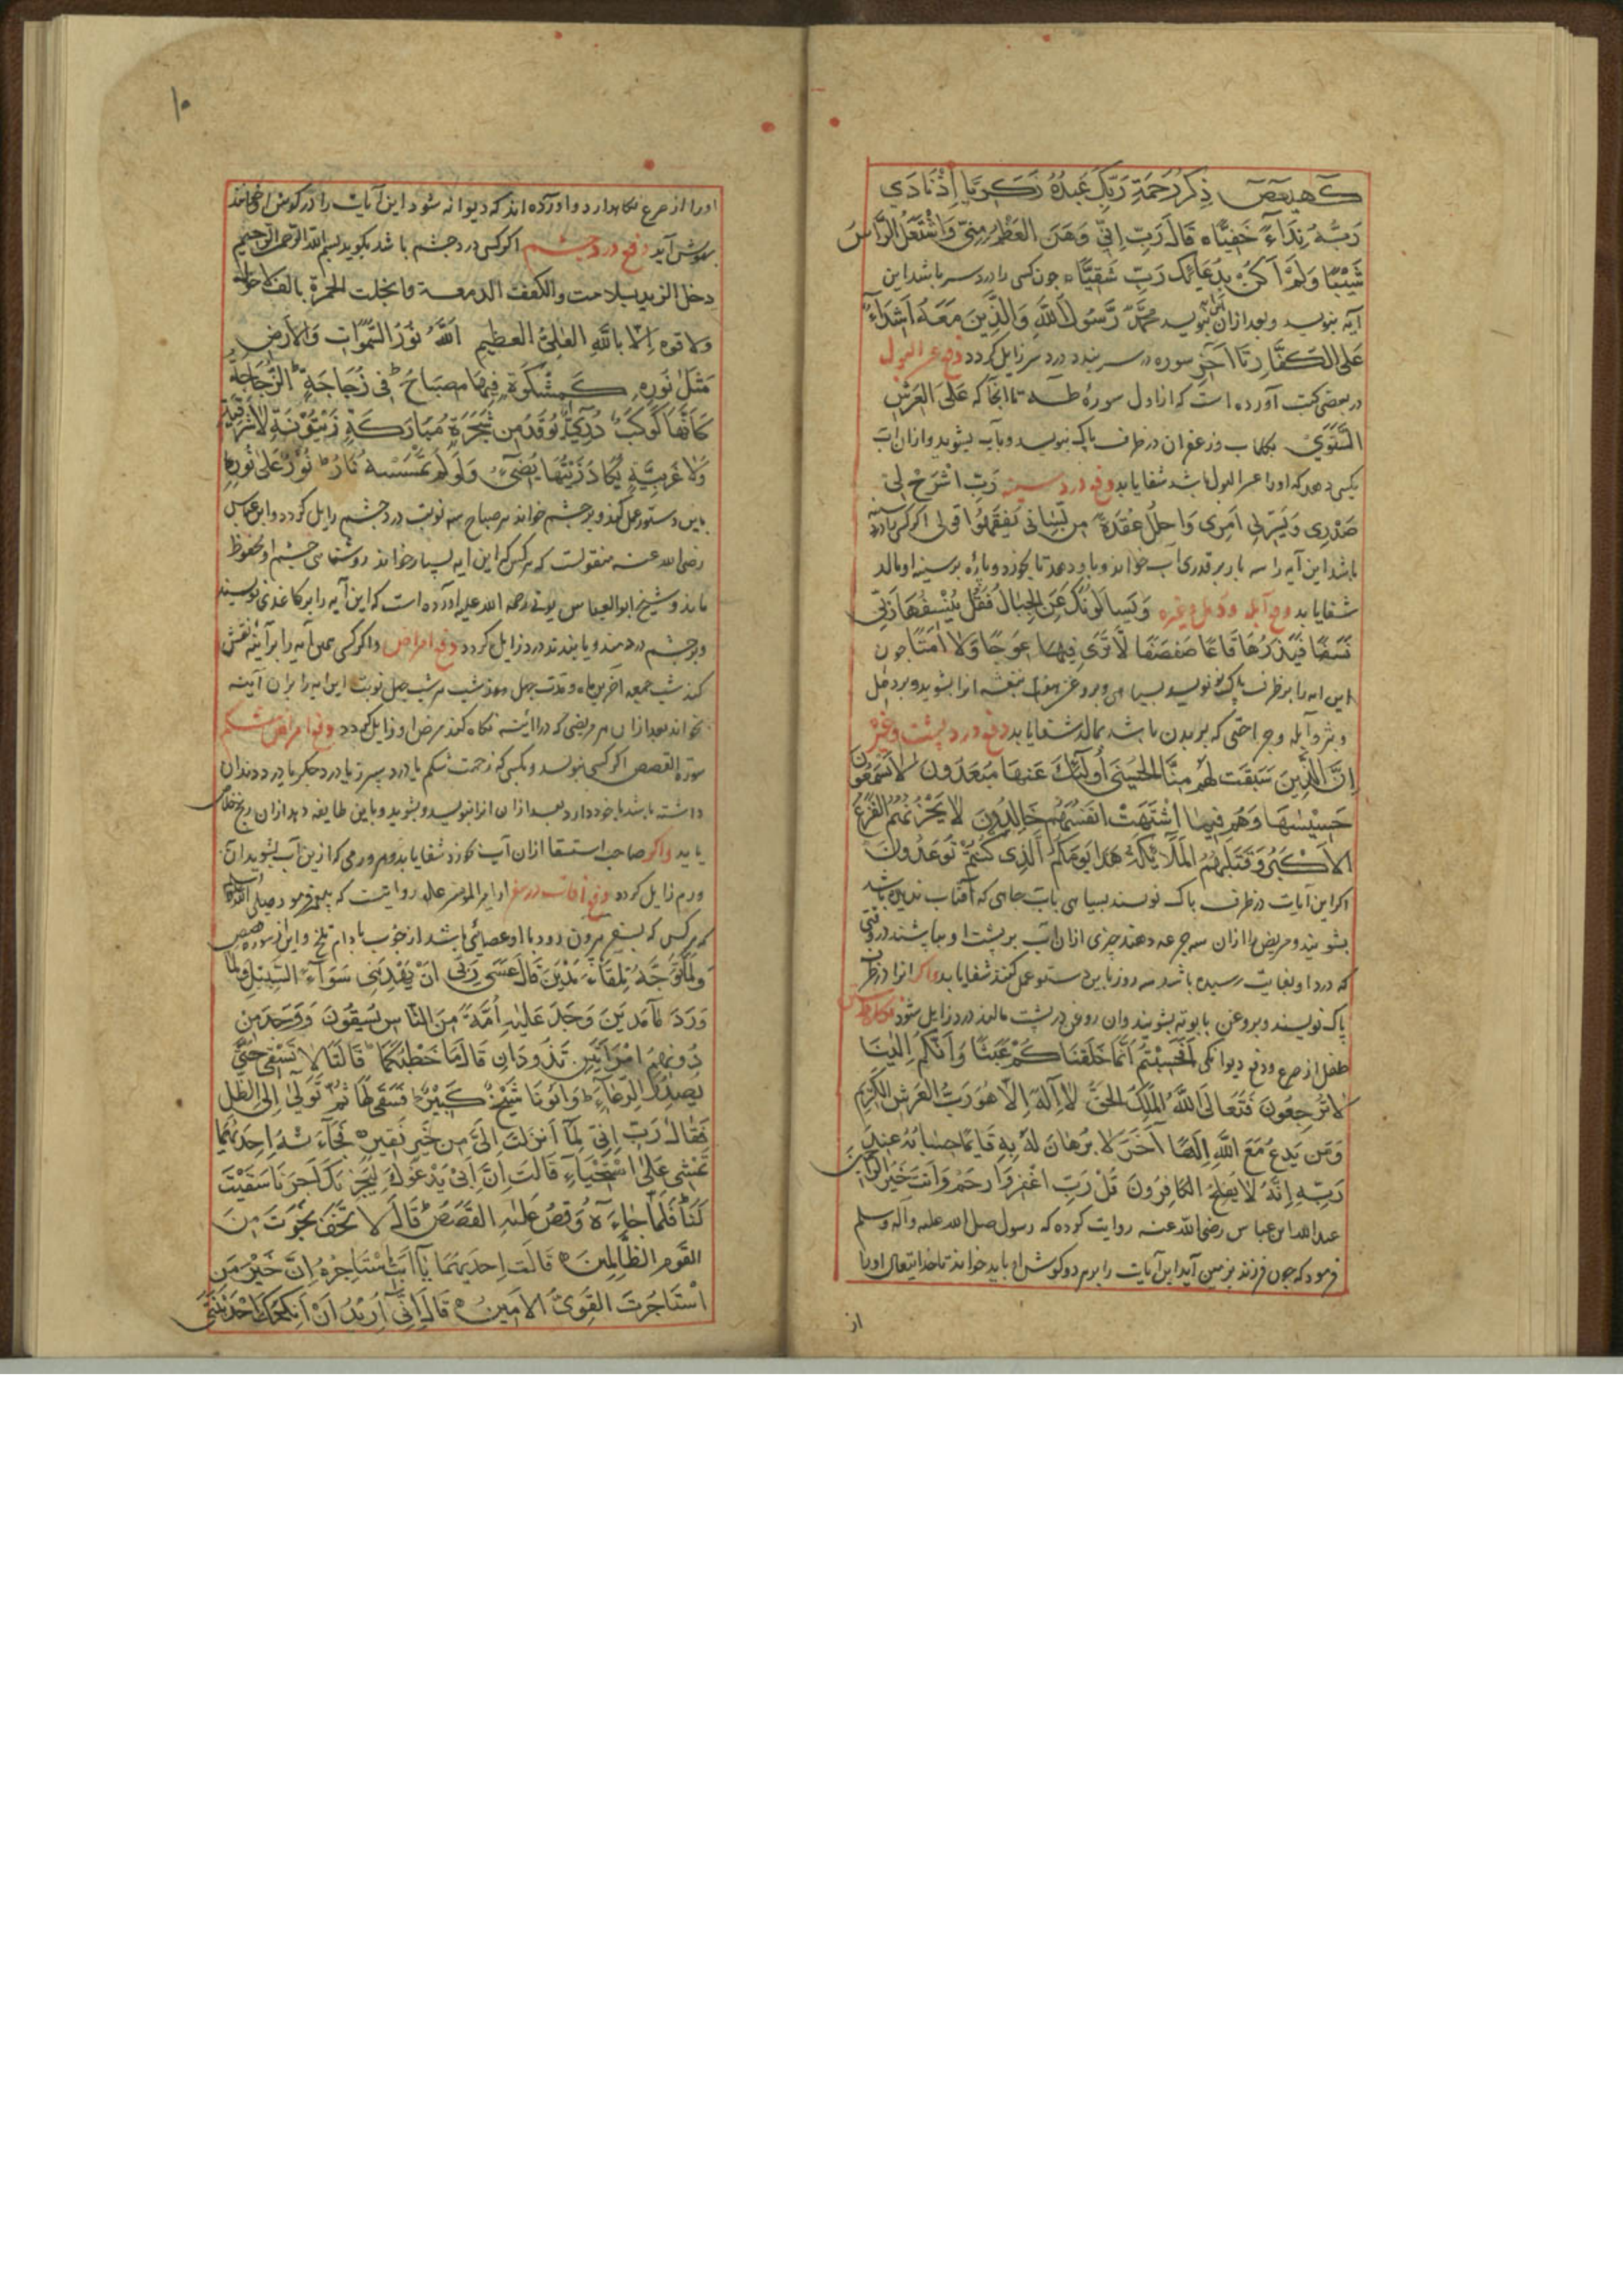 كهيعص ذِكْرُ رَحْمَةِ رَبِّكَ عَبْدَهُ زَكَرِيَّا إِذْ نَادَى
رَبَّهُ نِدَاءً خَفِيًّا قَالَ رَبِّ إِنِّي وَهَنَ الْعَظْمُ مِنِّي وَاشْتَعَلَ الرَّأْسُ
شَيْبًا وَلَمْ أَكُنْ بِدُعَائِكَ رَبِّ شَقِيًّا چون کسی را درد سر باشد این
آیه بنویسد و بعد ازان بنویسد مُحَمَّدٌ رَسُولُ اللَّهِ وَالَّذِينَ مَعَهُ أَشِدَّاءُ
عَلَى الْكُفَّارِ تا آخر سوره در سر بندد درد سر زایل گردد دفع عسر البول
در بعضی کتب آورده است که از اول سورهٔ طه تا آنجا که عَلَى الْعَرْشِ
اسْتَوَى بکلاب و زعفران در ظرف پاک بنویسد و بآب بشوید و ازان آب
بکسی دهد که او را عسر البول باشد شفا یابد دفع درد سینه رَبِّ اشْرَحْ لِي
صَدْرِي وَيَسِّرْ لِي أَمْرِي وَاحْلُلْ عُقْدَةً مِنْ لِسَانِي يَفْقَهُوا قَوْلِي اگر کسی را درد سینه
باشد این آیه را سه بار بر قدری آب خواند و باو دهد تا بخورد و پاره بر سینه او مالد
شفا یابد دفع آبله و دمل و غیره وَيَسْأَلُونَكَ عَنِ الْجِبَالِ فَقُلْ يَنْسِفُهَا رَبِّي
نَسْفًا فَيَذَرُهَا قَاعًا صَفْصَفًا لَا تَرَى فِيهَا عِوَجًا وَلَا أَمْتًا چون
این آیه را بر ظرف پاک نو نویسد بسیاهی و بروغن بنفشه آنرا بشوید و بر دمل
و بثر و آبله و جراحتی که بر بدن باشد بمالد شفا یابد دفع درد پشت و غیره
إِنَّ الَّذِينَ سَبَقَتْ لَهُمْ مِنَّا الْحُسْنَى أُولَئِكَ عَنْهَا مُبْعَدُونَ لَا يَسْمَعُونَ
حَسِيسَهَا وَهُمْ فِيمَا اشْتَهَتْ أَنْفُسُهُمْ خَالِدُونَ لَا يَحْزُنُهُمُ الْفَزَعُ
الْأَكْبَرُ وَتَتَلَقَّاهُمُ الْمَلَائِكَةُ هَذَا يَوْمُكُمُ الَّذِي كُنْتُمْ تُوعَدُونَ
اگر این آیات در ظرف پاک نویسند بسیاهی بآب چاهی که آفتاب ندیده باشد
بشویند و مریض را ازان سه جرعه دهند چیزی ازان آب بر پشت او بپاشند در وقتی
که درد او بغایت رسیده باشد سه روز باین دستور عمل کنند شفا یابد واگر آنرا در ظرف
پاک نویسند و بروغن بابونه بشویند وان روغن در پشت مالند درد زایل شود
طفل از صرع و دفع دیوانگی أَفَحَسِبْتُمْ أَنَّمَا خَلَقْنَاكُمْ عَبَثًا وَأَنَّكُمْ إِلَيْنَا
لَا تُرْجَعُونَ فَتَعَالَى اللَّهُ الْمَلِكُ الْحَقُّ لَا إِلَهَ إِلَّا هُوَ رَبُّ الْعَرْشِ الْكَرِيمِ
وَمَنْ يَدْعُ مَعَ اللَّهِ إِلَهًا آخَرَ لَا بُرْهَانَ لَهُ بِهِ فَإِنَّمَا حِسَابُهُ عِنْدَ
رَبِّهِ إِنَّهُ لَا يُفْلِحُ الْكَافِرُونَ قُلْ رَبِّ اغْفِرْ وَارْحَمْ وَأَنْتَ خَيْرُ الرَّاحِمِينَ
عبد الله ابن عباس رضی الله عنه روایت کرده که رسول صلی الله علیه وآله وسلم
فرمود که چون فرزند بزمین آید این آیات را در هر دو گوش او باید خواند تا خدایتعالی او را
از
۱۰
او را از صرع نگاهدارد و آورده اند که دیوانه شود این آیات را در گوش او خوانند
بهوش آید دفع درد چشم اگر کسی درد چشم باشد بگوید بسم الله الرحمن الرحیم
ولا قوة إلا بالله العلي العظيم اللَّهُ نُورُ السَّمَوَاتِ وَالْأَرْضِ
مَثَلُ نُورِهِ كَمِشْكَوةٍ فِيهَا مِصْبَاحٌ فِي زُجَاجَةٍ الزُّجَاجَةُ
كَأَنَّهَا كَوْكَبٌ دُرِّيٌّ يُوقَدُ مِنْ شَجَرَةٍ مُبَارَكَةٍ زَيْتُونَةٍ لَا شَرْقِيَّةٍ
وَلَا غَرْبِيَّةٍ يَكَادُ زَيْتُهَا يُضِيءُ وَلَوْ لَمْ تَمْسَسْهُ نَارٌ نُورٌ عَلَى نُورٍ
باین دستور عمل کند و بر چشم خواند هر صباح سه نوبت درد چشم زایل گردد و ابن عباس
رضی الله عنه منقولست که هر کس که این آیه بسیار خواند روشنائی چشم او محفوظ
ماند و شیخ ابو العباس بونی رحمه الله علیه آورده است که این آیه را بر کاغذی نویسند
و بر چشم دردمند و بابندند درد زایل گردد دفع امراض واگر کسی همین آیه را بر آینه نقش
کند شب جمعه آخرین ماه و مدت چهل روز شب هر شب چهل نوبت این آیه را بران آینه
خواند بعد ازان هر مریضی که در آئینه نگاه کند مرض او زایل گردد دفع امراض شکم
سورة القصص اگر کسی بنویسد و بکسی که زحمت شکم یا درد سپرز یا درد جگر یا درد دندان
داشته باشد با خود دارد بعد ازان آنرا بنویسد و بشوید و باین طایفه دهد ازان رنج خلاص
یابد واگر صاحب استسقا ازان آب خورد شفا یابد و هر ورمی که ازین آب بشوید آن
ورم زایل گردد دفع آفات در سفر از امیر المؤمنین علی روایتست که پیغمبر فرمود صلی الله علیه
که هر کس که بسفر بیرون رود و با او عصائی باشد از چوب بادام تلخ و این از سوره قصص
وَلَمَّا تَوَجَّهَ تِلْقَاءَ مَدْيَنَ قَالَ عَسَى رَبِّي أَنْ يَهْدِيَنِي سَوَاءَ السَّبِيلِ وَلَمَّا
وَرَدَ مَاءَ مَدْيَنَ وَجَدَ عَلَيْهِ أُمَّةً مِنَ النَّاسِ يَسْقُونَ وَوَجَدَ مِنْ
دُونِهِمُ امْرَأَتَيْنِ تَذُودَانِ قَالَ مَا خَطْبُكُمَا قَالَتَا لَا نَسْقِي حَتَّى
يُصْدِرَ الرِّعَاءُ وَأَبُونَا شَيْخٌ كَبِيرٌ فَسَقَى لَهُمَا ثُمَّ تَوَلَّى إِلَى الظِّلِّ
فَقَالَ رَبِّ إِنِّي لِمَا أَنْزَلْتَ إِلَيَّ مِنْ خَيْرٍ فَقِيرٌ فَجَاءَتْهُ إِحْدَاهُمَا
تَمْشِي عَلَى اسْتِحْيَاءٍ قَالَتْ إِنَّ أَبِي يَدْعُوكَ لِيَجْزِيَكَ أَجْرَ مَا سَقَيْتَ
لَنَا فَلَمَّا جَاءَهُ وَقَصَّ عَلَيْهِ الْقَصَصَ قَالَ لَا تَخَفْ نَجَوْتَ مِنَ
الْقَوْمِ الظَّالِمِينَ قَالَتْ إِحْدَاهُمَا يَا أَبَتِ اسْتَأْجِرْهُ إِنَّ خَيْرَ مَنِ
اسْتَأْجَرْتَ الْقَوِيُّ الْأَمِينُ قَالَ إِنِّي أُرِيدُ أَنْ أُنْكِحَكَ إِحْدَى ابْنَتَيَّ